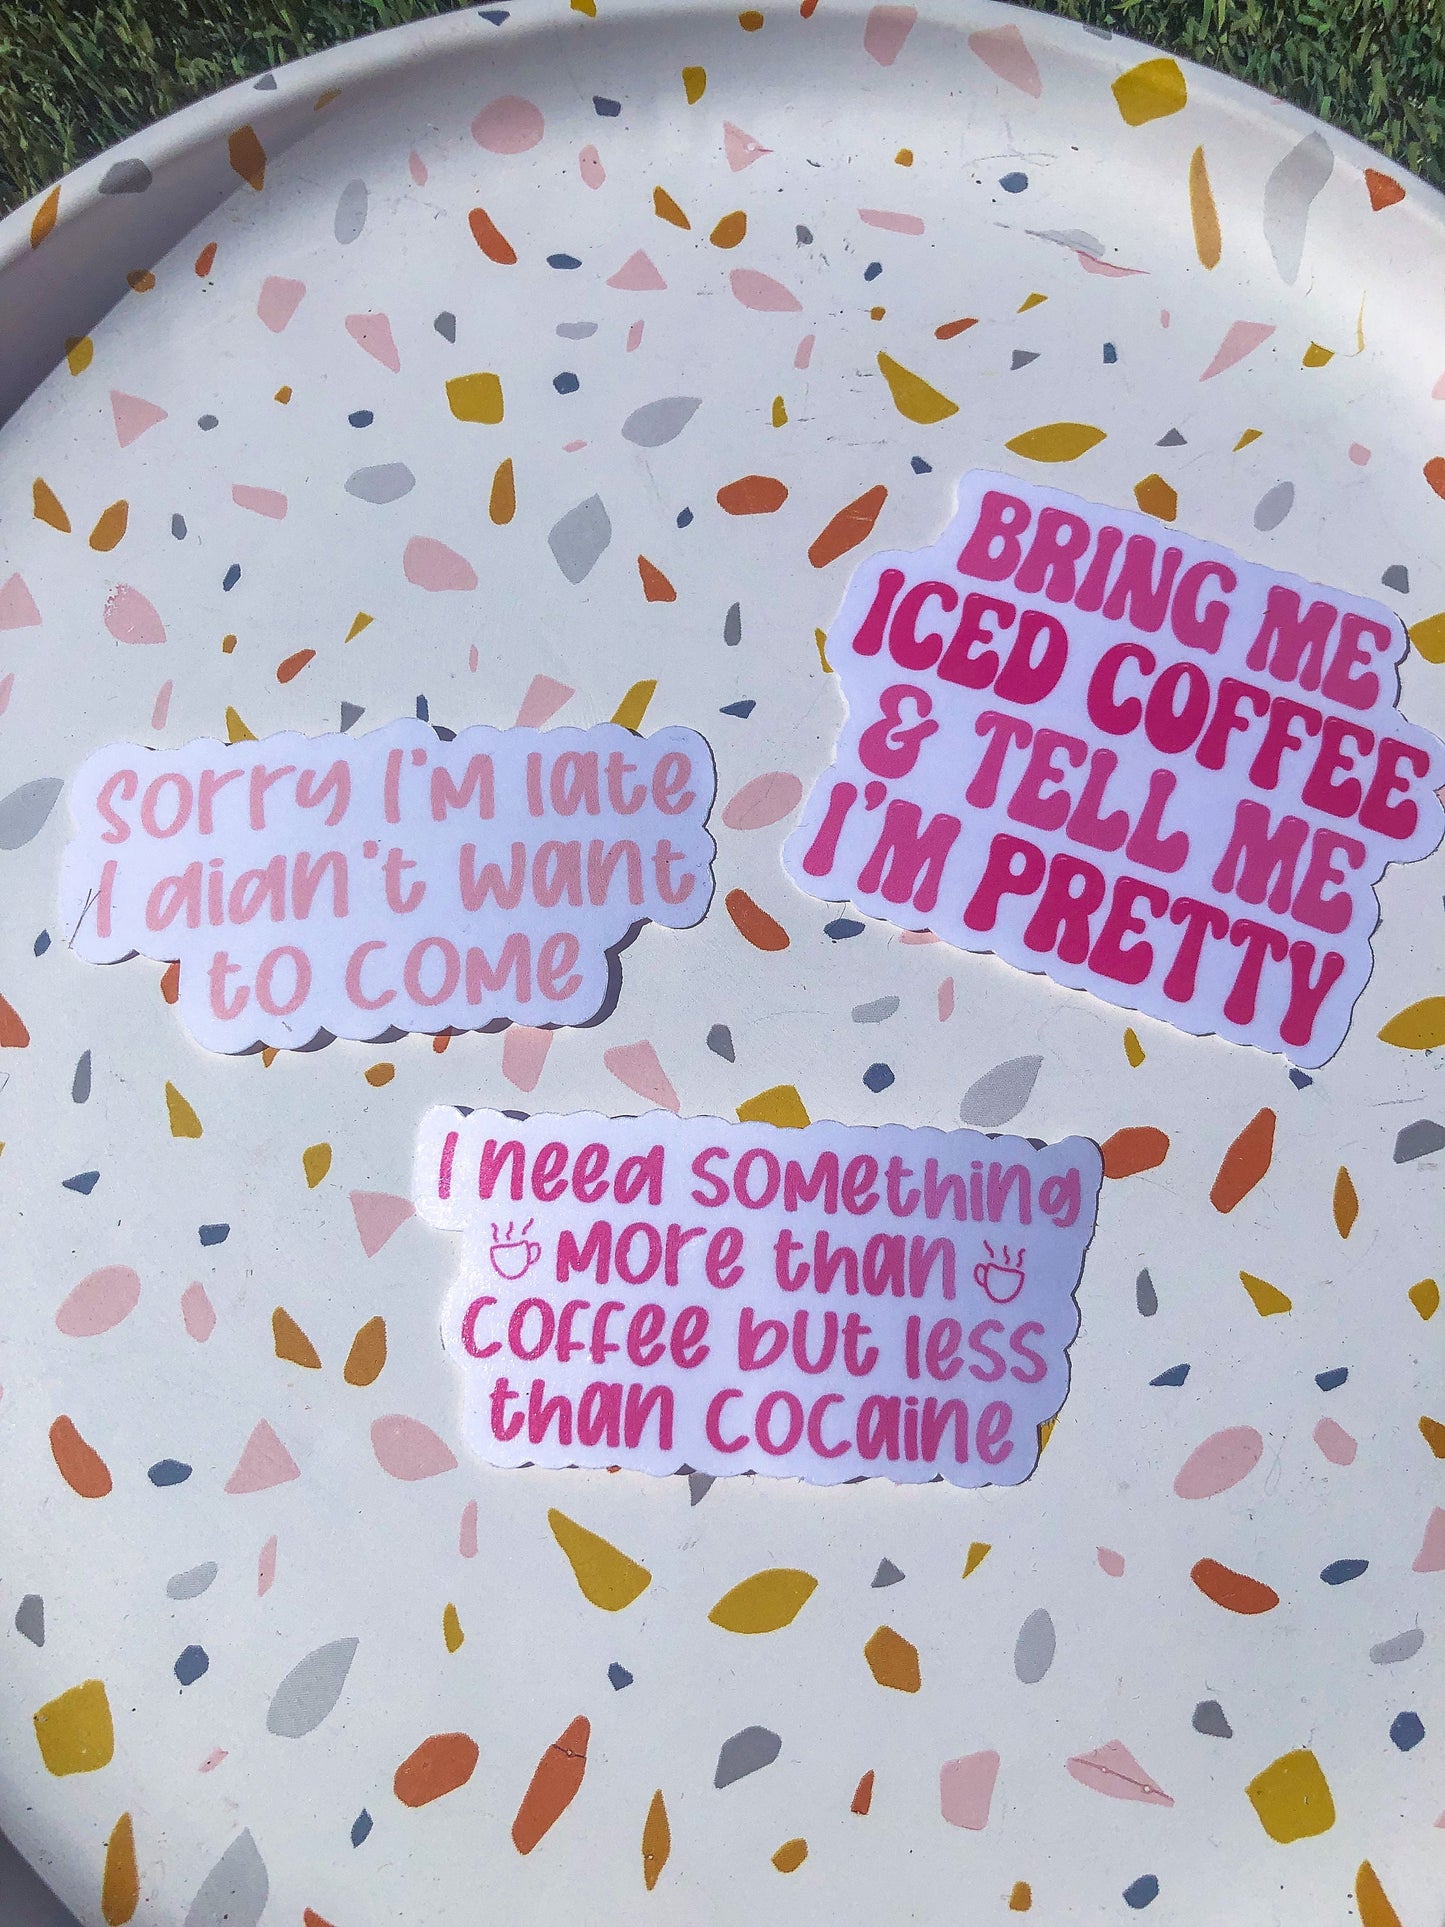 BRING ME
ICED COFFEE
& TELL ME
I'M PRETTY
sorry I'm late
I didn't want
to come
I need something
more than
coffee but less
than cocaine